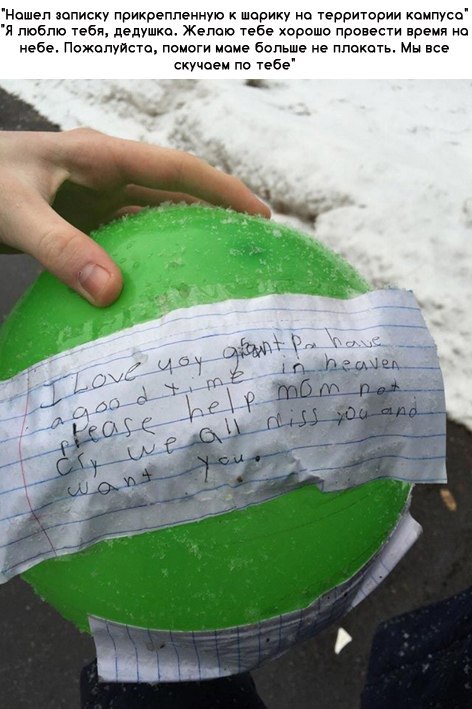 "Нашел записку прикрепленную к шарику на территории кампуса"
"Я люблю тебя, дедушка. Желаю тебе хорошо провести время на
небе. Пожалуйста, помоги маме больше не плакать. Мы все
скучаем по тебе"
I Love yoy grantpa have
a good time in heaven
please help mom not
cry we all miss you and
want you.